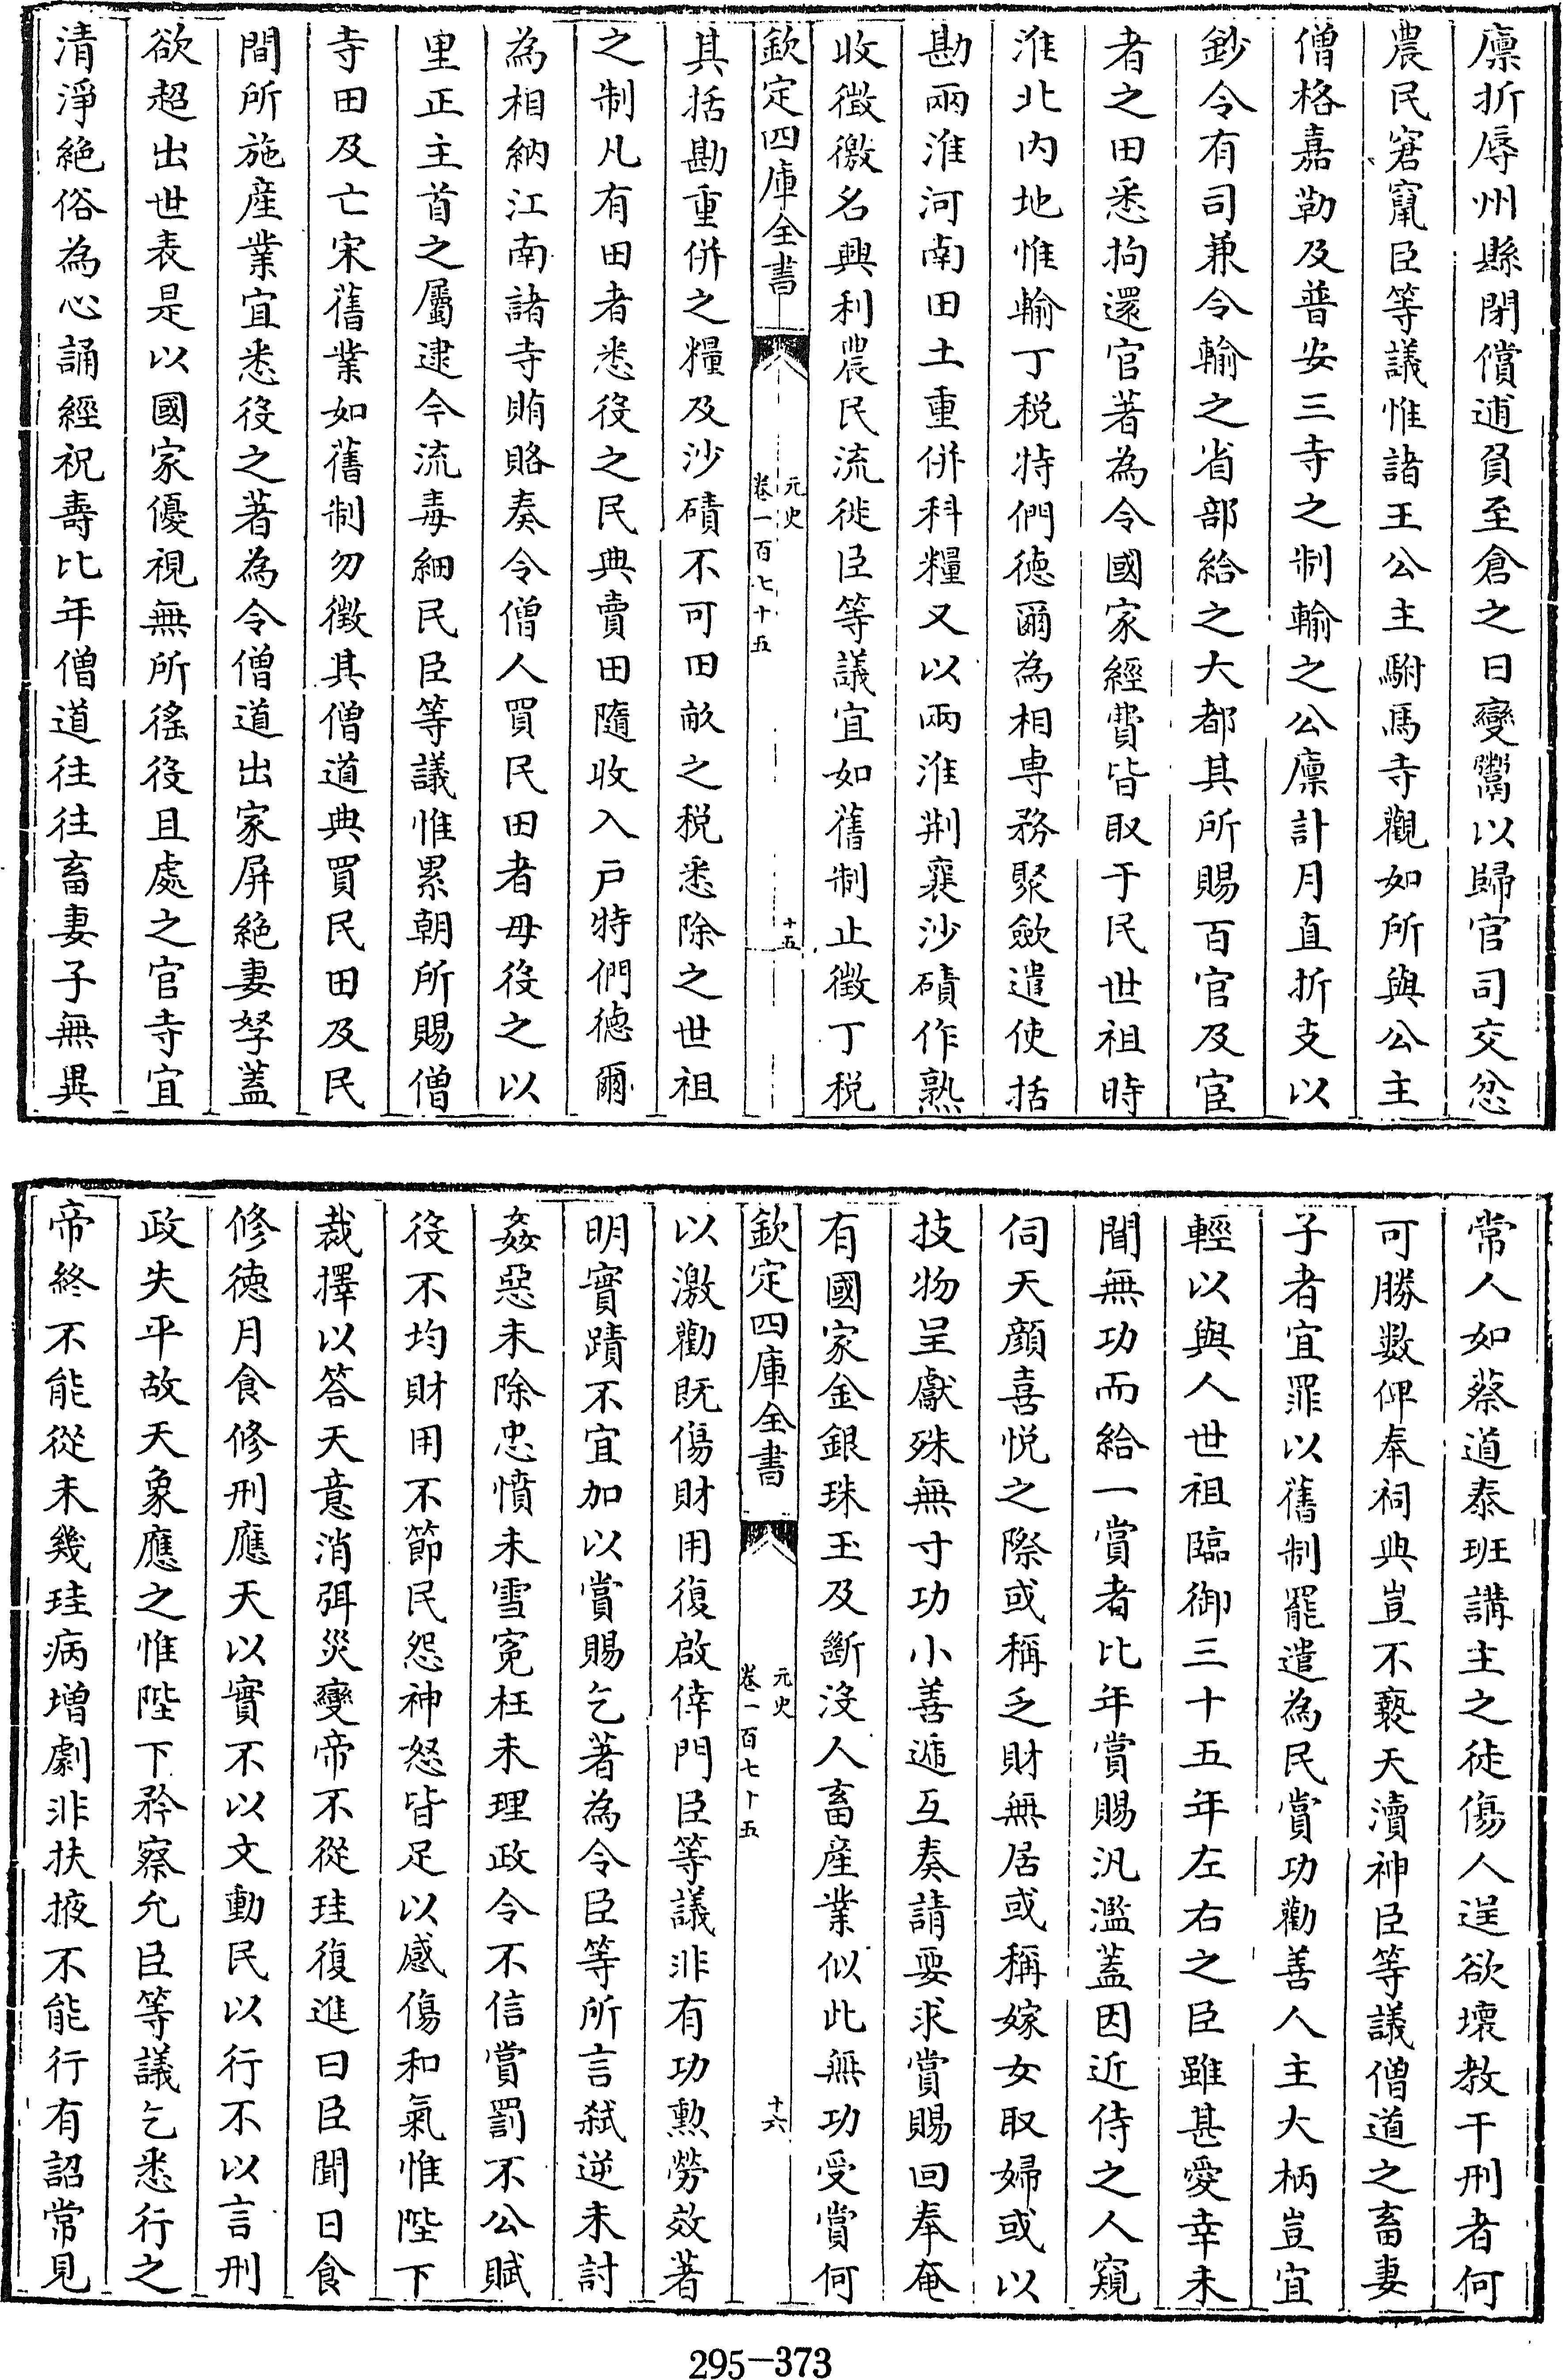 廩折辱州縣閉償逋負至倉之日變鬻以歸官司交忿
農民窘竄臣等議惟諸王公主駙馬寺觀如所與公主
僧格嘉勒及普安三寺之制輸之公廩計月直折支以
鈔令有司兼令輸之省部給之大都其所賜百官及宦
者之田悉拘還官著為令國家經費皆取于民世祖時
淮北内地惟輸丁税特們德爾為相専務聚斂遣使括
勘兩淮河南田土重併科糧又以兩淮荆襄沙磧作熟
收徴徼名興利農民流徙臣等議宜如舊制止徴丁税
欽定四庫全書
元史
卷一百七十五
十五
其括勘重併之糧及沙磧不可田畝之税悉除之世祖
之制凡有田者悉役之民典賣田隨收入戸特們德爾
為相納江南諸寺賄賂奏令僧人買民田者毋役之以
里正主首之屬逮今流毒細民臣等議惟累朝所賜僧
寺田及亡宋舊業如舊制勿徴其僧道典買民田及民
間所施産業宜悉役之著為令僧道出家屏絶妻孥蓋
欲超出世表是以國家優視無所徭役且處之官寺宜
清淨絶俗為心誦經祝壽比年僧道往往畜妻子無異
常人如蔡道泰班講主之徒傷人逞欲壞教干刑者何
可勝數俾奉祠典豈不褻天瀆神臣等議僧道之畜妻
子者宜罪以舊制罷遣為民賞功勸善人主大柄豈宜
輕以與人世祖臨御三十五年左右之臣雖甚愛幸未
聞無功而給一賞者比年賞賜汎濫蓋因近侍之人窺
伺天顔喜悦之際或稱乏財無居或稱嫁女取婦或以
技物呈獻殊無寸功小善遞互奏請要求賞賜回奉奄
有國家金銀珠玉及斷没人畜産業似此無功受賞何
欽定四庫全書
元史
卷一百七十五
十六
以激勸既傷財用復啟倖門臣等議非有功勲勞效著
明實蹟不宜加以賞賜乞著為令臣等所言弑逆未討
姦惡未除忠憤未雪寃枉未理政令不信賞罰不公賦
役不均財用不節民怨神怒皆足以感傷和氣惟陛下
裁擇以答天意消弭災變帝不從珪復進曰臣聞日食
修德月食修刑應天以實不以文動民以行不以言刑
政失平故天象應之惟陛下矜察允臣等議乞悉行之
帝終不能從未幾珪病增劇非扶掖不能行有詔常見
295-373